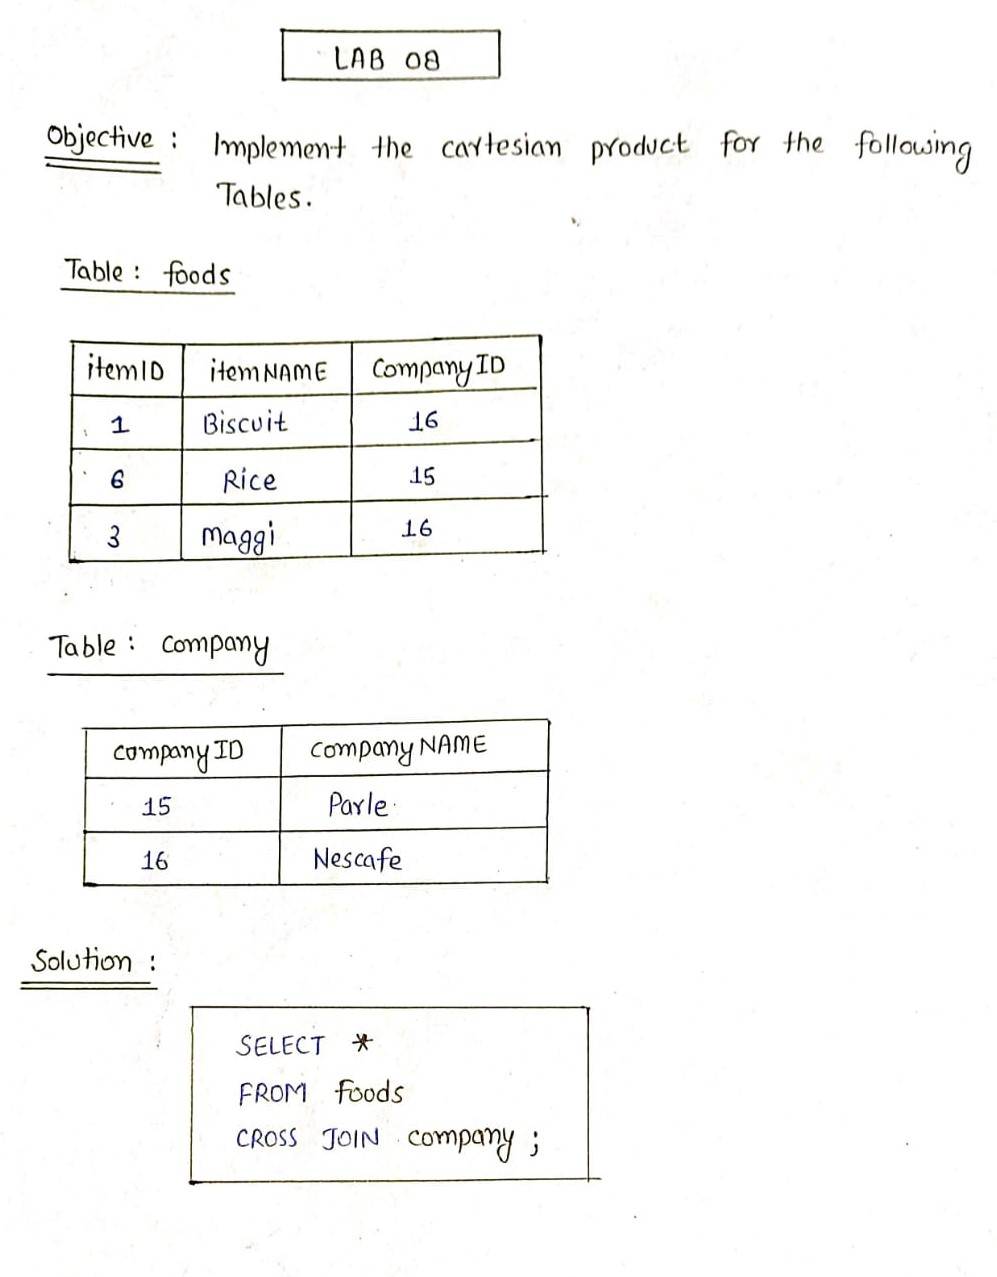 LAB 08
Objective : Implement the cartesian product for the following
Tables.
Table : foods
itemID itemNAME CompanyID
1 Biscuit 16
6 Rice 15
3 Maggi 16
Table : Company
companyID companyNAME
15 Parle
16 Nescafe
Solution :
SELECT *
FROM foods
CROSS JOIN company ;